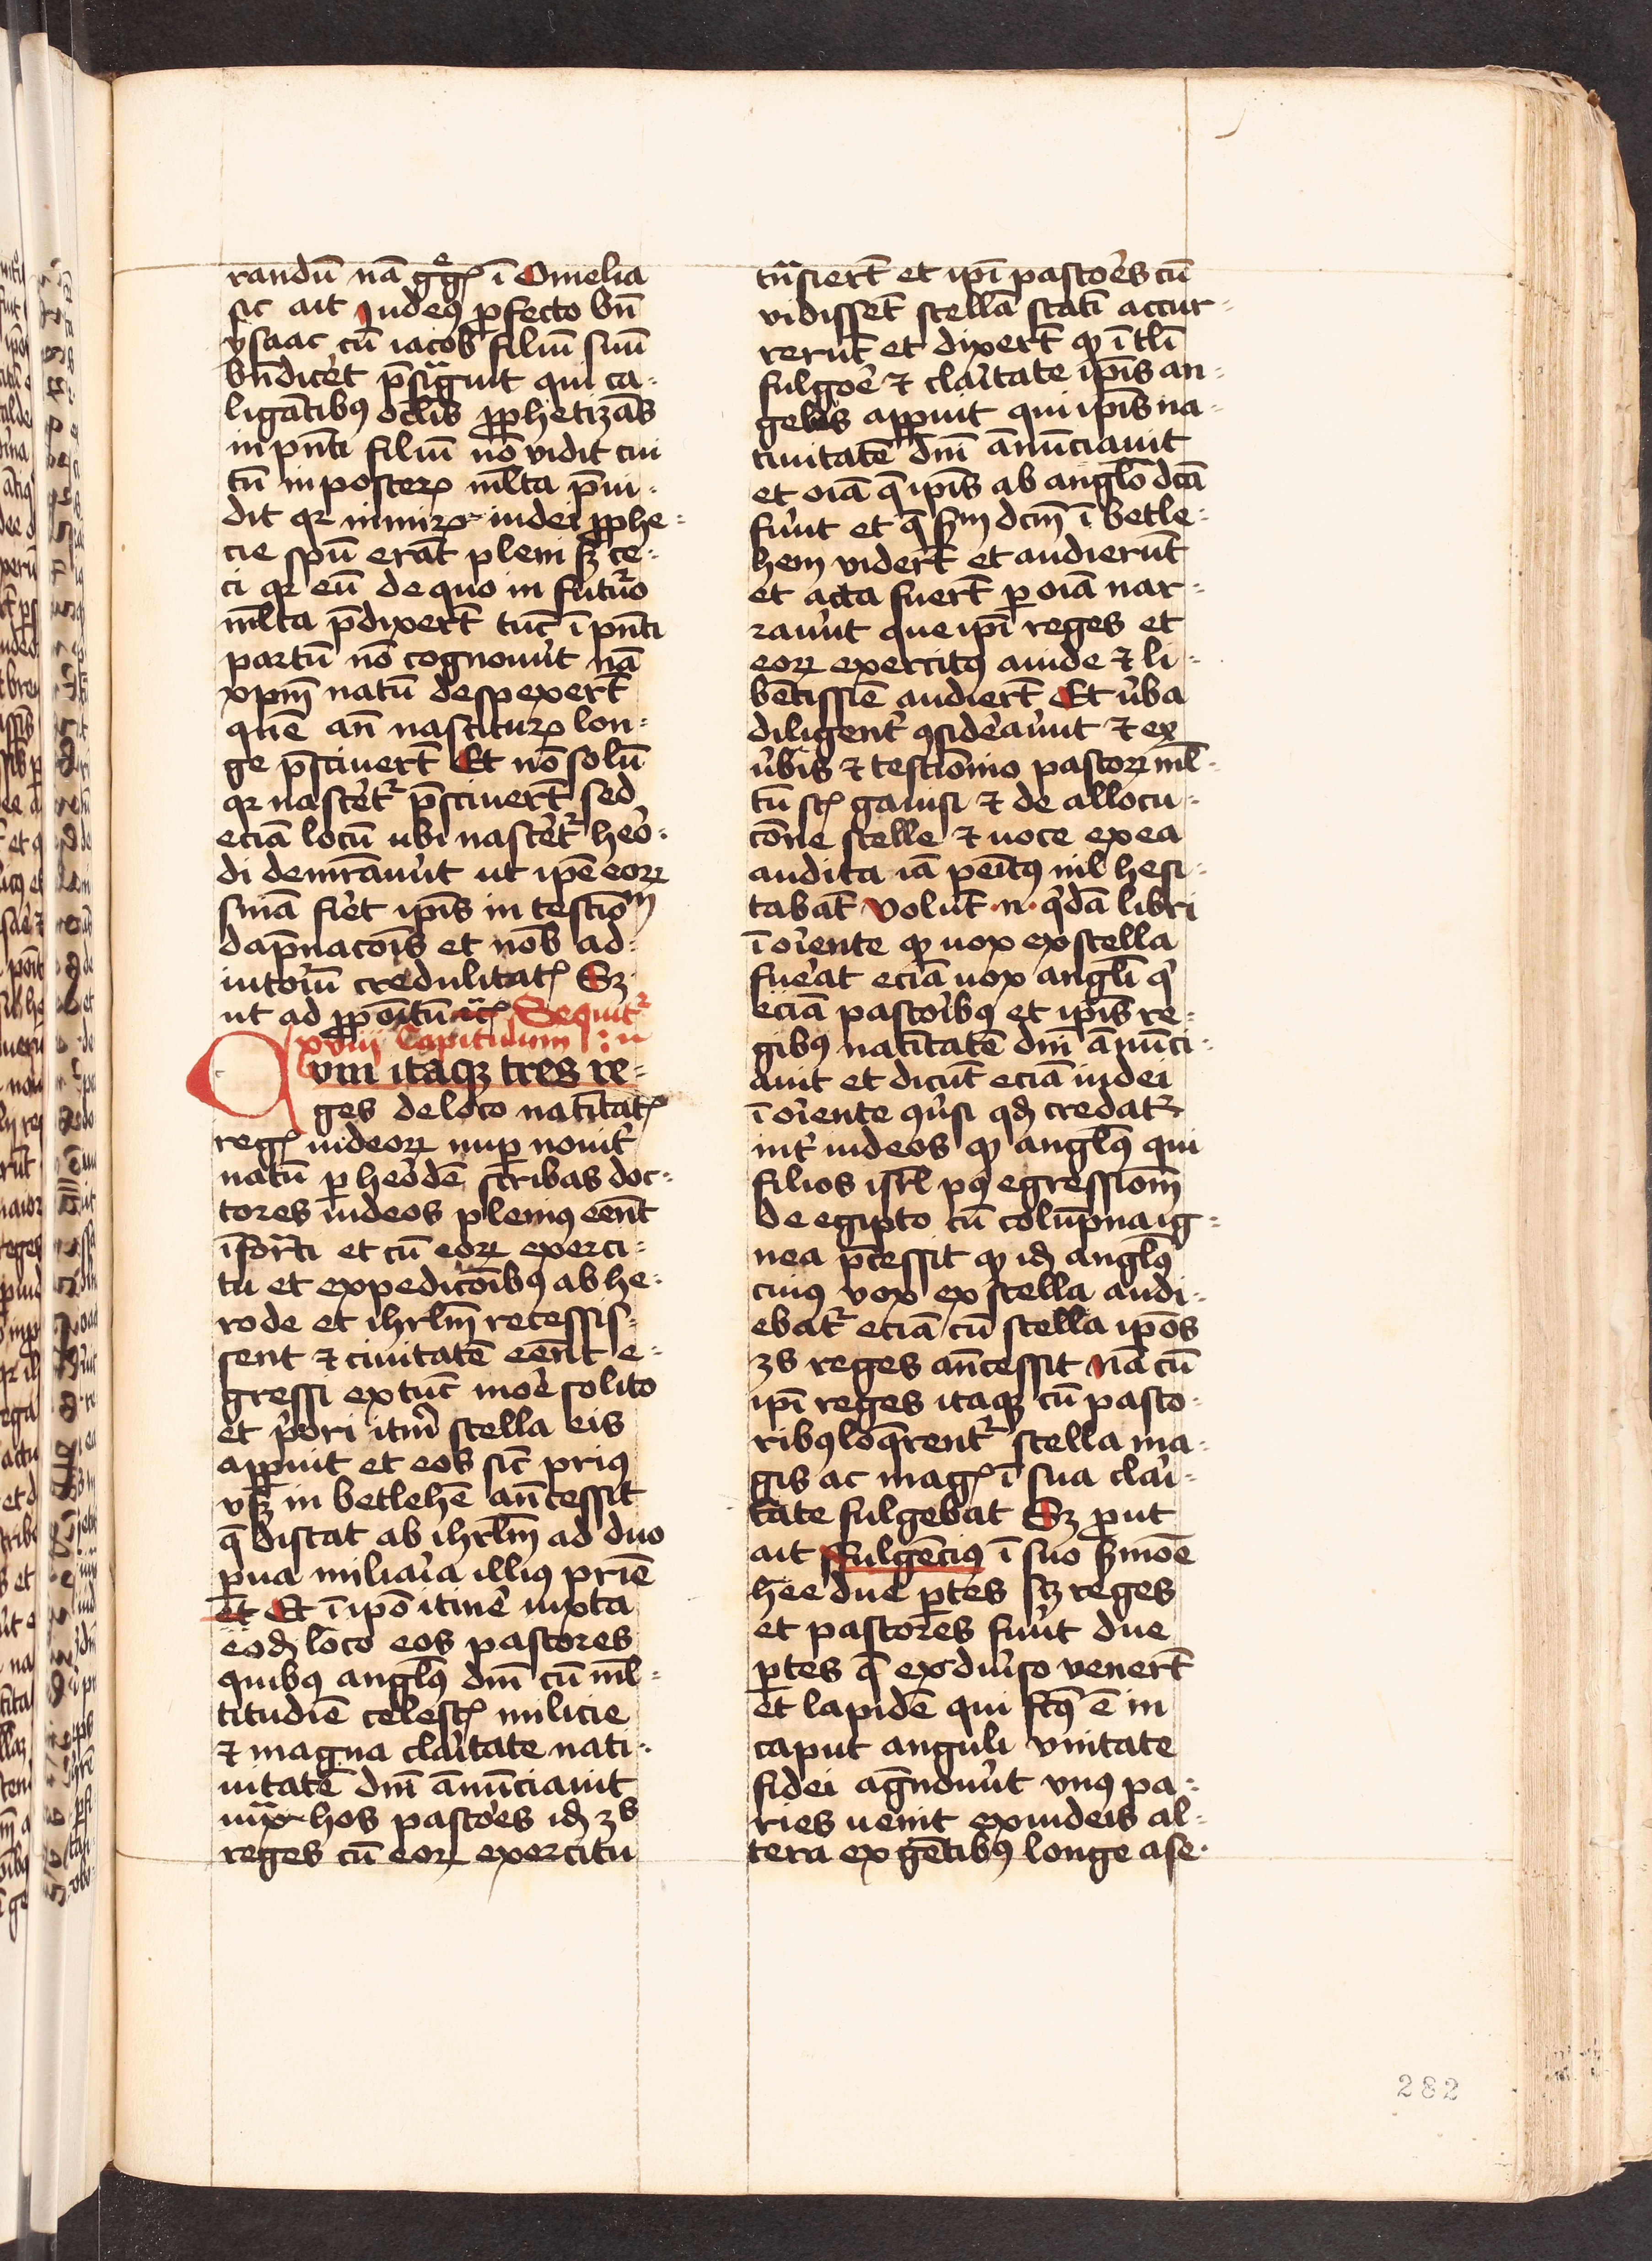 randū nā gͤg̃ꝭ ī Omelia
sic ait Iudeꝰ ꝓfecto bn̄
ysaac cū iacob filiū suū
bn̄dicēt p̄sigᷓuit qui ca-
ligātibꝰ oc̄lis ꝓphetizās
in pn̄ti filiū nō vidit cui
tn̄ in posterꝝ ml̄ta p̄ui-
dit qꝛ nimiꝝ iudei ꝓphe-
cie spū erāt pleni sꝫ ce-
ci qꝛ eū de quo in futuro
ml̄ta p̄dixert̄ tūc ī pn̄ti
partū nō cognouūt nā
xp̄m natū despexert̄
quē an̄ nasciturꝝ lon-
ge p̄sciuert̄ Et nō solū
qꝛ nascet̄ p̄sciuert̄ sed
eciā locū ubi nascet̄ hero-
di demr̄auūt ut ip̄e eoꝝ
sn̄ia fiet ip̄is in testiom̄
dāpnacōis et nob̄ ad-
iutoriū credulitatꝭ Sꝫ
ut ad ꝓpoitū r̄cꝭ Sequit̄
xviij Capitulum
Qvm itaqꝫ tres re-
ges de loco natītatꝭ
regꝭ iudeoꝝ nuꝑ nouit̄
natū ꝑ herodē scribas doc-
tores iudeos pleniꝰ eēnt
īfor̄ti et cū eoꝝ exerci-
tu et expedicōibꝰ ab he-
rode et ihrl̄m recessis-
sent ⁊ ciuitatē eēnt e-
gressi ex tūc more solito
et priori itūm stella eis
apꝑuit et eos sic̄ prius
vsqꝫ in betlehē an̄cessit
q̄ distat ab ihrl̄m ad duo
parua miliaria illius prie
et Et ī ip̄o itinē iuxta
eodē loco eos pastores
quibꝰ angl̄ꝰ dn̄i cū ml̄-
titudiē celestꝭ milicie
⁊ magna claritate nati-
uitatē dn̄i ānūciauit
iuxᷓ hos pastores idē 3s
reges cū eoꝝ exercitu
tn̄siert̄ et ip̄i pastores cū
vidissēt stellā statī accur-
rerūt et dixert̄ qꝫ ī tl̄i
fulgore ⁊ claritate ip̄is an-
gelus apꝑuit qui ip̄is na-
tiuitatē dn̄i ānūciauit
et oīa q̄ ip̄is ab anglo dc̄a
fuūt et q̄ sm̄ dc̄m ī betle-
hem vidert̄ et audierūt
et acta fuert̄ ꝑ oīa nar-
rauūt que ip̄i reges et
eoꝝ exercitꝰ auide ⁊ li-
bētissiē audiert̄ Et ūba
diligent̄ ꝯsideauūt ⁊ ex
ūbis ⁊ testiōnio pastoꝝ ml̄-
tū sꝭ gauisi ⁊ de allocu-
cōne stelle ⁊ uoce ex ea
audita iā penitꝰ nil hesi-
tabāt Volūt .n. qͥdā libri
ī oriente qꝫ uox ex stella
fuerat eciā uox angl̄i qͥ
eciā pastoribꝰ et ip̄is re-
gibꝰ natītatē dn̄i ānūci-
auit et dicūt eciā iudei
ī oriente ꝯūsi qd̄ credat̄
int̄ iudeos qꝫ angl̄ꝰ qui
filios isrl̄ pꝰ egressiom̄
de egipto cū colūpna ig-
nea p̄cessit qꝫ id̄ angl̄ꝰ
cuiꝰ vox ex stella audi-
ebat̄ eciā cū stella ip̄os
3s reges an̄cessit Nā cū
ip̄i reges itaqꝫ cū pasto-
ribꝰ loq̄rent̄ stella ma-
gis ac magꝭ ī sua clari-
tate fulgebat Sꝫ ꝓut
ait Fulgēcius ī suo sm̄oe
hee due ꝑtes sꝫ reges
et pastores fuūt due
ꝑtes q̄ ex diuso venert̄
et lapidē qui fc̄ꝰ ē in
caput anguli vnitate
fidei agn̄ouūt vnꝰ pa-
ries uenit ex iudeis al-
tera ex gētibꝰ longe a se
282